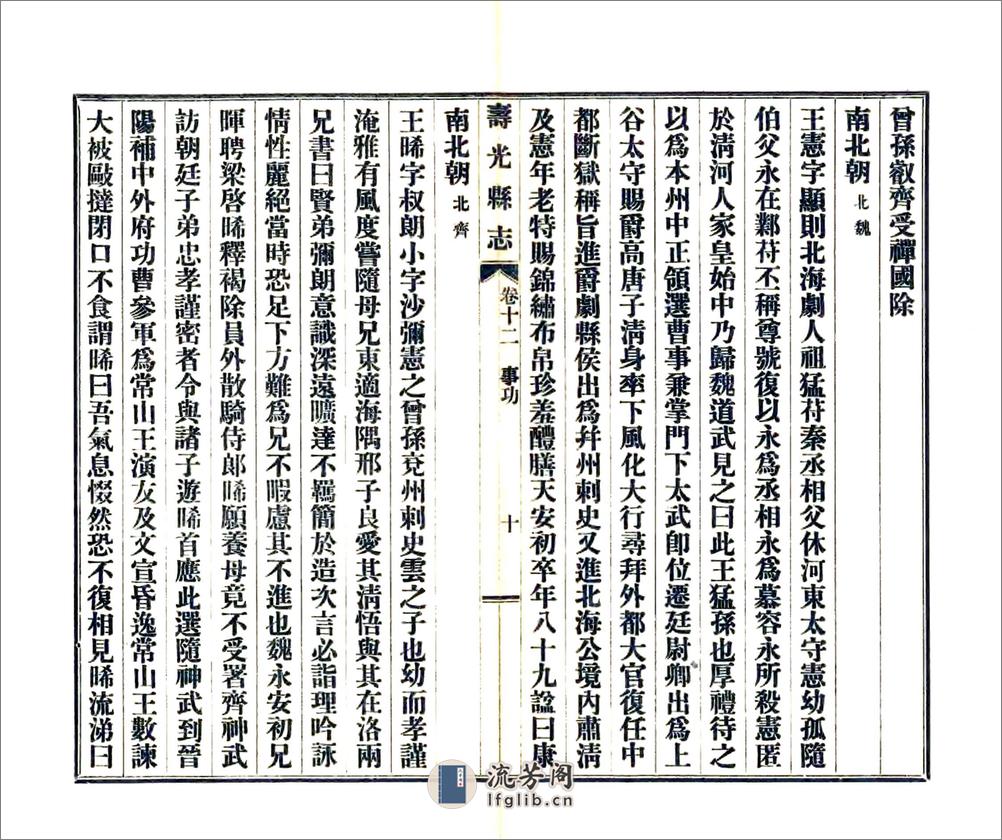 曾孫叡齊受禪國除
南北朝 北魏
王憲字顯則北海劇人祖猛苻秦丞相父休河東太守憲幼孤隨
伯父永在鄴苻丕稱尊號復以永爲丞相永爲慕容永所殺憲匿
於淸河人家皇始中乃歸魏道武見之曰此王猛孫也厚禮待之
以爲本州中正領選曹事兼掌門下太武卽位遷廷尉卿出爲上
谷太守賜爵高唐子淸身率下風化大行尋拜外都大官復任中
都斷獄稱旨進爵劇縣侯出爲幷州刺史又進北海公境內肅淸
及憲年老特賜錦繡布帛珍羞醴膳天安初卒年八十九諡曰康
壽光縣志 卷十二 事功 十
南北朝 北齊
王晞字叔朗小字沙彌憲之曾孫兗州刺史雲之子也幼而孝謹
淹雅有風度嘗隨母兄東適海隅邢子良愛其淸悟與其在洛兩
兄書曰賢弟彌朗意識深遠曠達不羈簡於造次言必詣理吟詠
情性麗絕當時恐足下方難爲兄不暇慮其不進也魏永安初兄
暉聘梁啓晞釋褐除員外散騎侍郞晞願養母竟不受署齊神武
訪朝廷子弟忠孝謹密者令與諸子遊晞首應此選隨神武到晉
陽補中外府功曹參軍爲常山王演友及文宣昏逸常山王數諫
大被毆撻閉口不食謂晞曰吾氣息惙然恐不復相見晞流涕曰
流芳阁
lfglib.cn